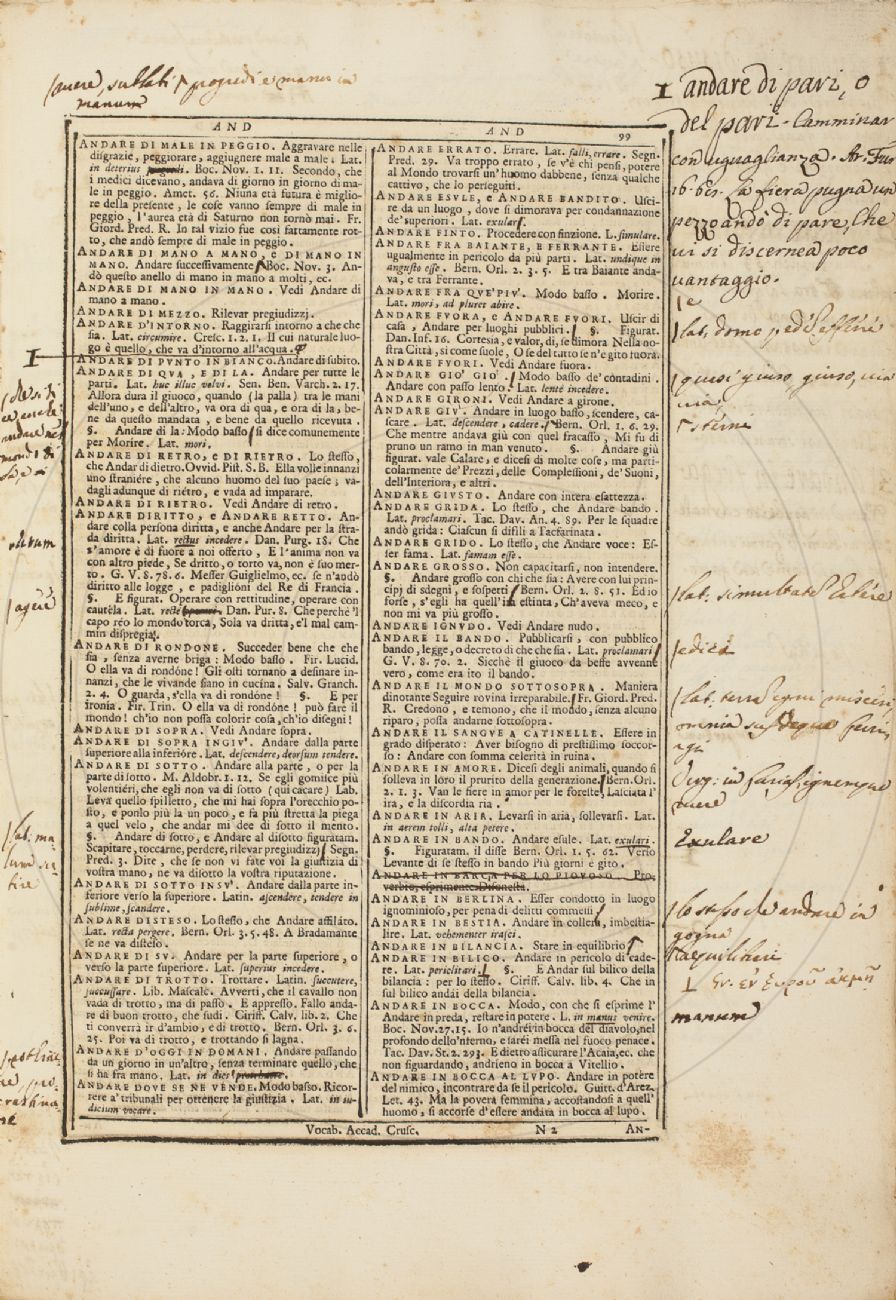 manum
AND
ANDARE DI MALE IN PEGGIO. Aggravare nelle
disgrazie, peggiorare, aggiugnere male a male. Lat.
in deterius Boc. Nov. 1. 11. Secondo, che
i medici dicevano, andava di giorno in giorno di ma-
le in peggio. Amet. 56. Niuna età futura è miglio-
re della presente, le cose vanno sempre di male in
peggio, l'aurea età di Saturno non tornò mai. Fr.
Giord. Pred. R. In tal vizio fue così fattamente rot-
to, che andò sempre di male in peggio.
ANDARE DI MANO A MANO, e DI MANO IN
MANO. Andare successivamente Boc. Nov. 3. An-
dò questo anello di mano in mano a molti, ec.
ANDARE DI MANO IN MANO. Vedi Andare di
mano a mano.
ANDARE DI MEZZO. Rilevar pregiudizzj.
ANDARE D'INTORNO. Raggirarsi intorno a che che
sia. Lat. circumire. Cresc. 1. 2. 1. Il cui naturale luo-
go è quello, che va d'intorno all'acqua.
ANDARE DI PVNTO IN BIANCO. Andare di subito.
ANDARE DI QVA, E DI LA. Andare per tutte le
parti. Lat. huc illuc volvi. Sen. Ben. Varch. 2. 17.
Allora dura il giuoco, quando (la palla) tra le mani
dell'uno, e dell'altro, va ora di qua, e ora di la, be-
ne da questo mandata, e bene da quello ricevuta.
§. Andare di la: Modo basso si dice comunemente
per Morire. Lat. mori.
ANDARE DI RETRO, e DI RIETRO. Lo stesso,
che Andar di dietro. Ovvid. Pist. S. B. Ella volle innanzi
uno straniére, che alcuno huomo del suo paese; va-
dagli adunque di riétro, e vada ad imparare.
ANDARE DI RIETRO. Vedi Andare di retro.
ANDARE DIRITTO, e ANDARE RETTO. An-
dare colla persona diritta, e anche Andare per la stra-
da diritta. Lat. rectus incedere. Dan. Purg. 18. Che
s'amore è di fuore a noi offerto, E l'anima non va
con altro piede, Se dritto, o torto va, non è suo mer-
to. G. V. 8. 78. 6. Messer Guiglielmo, ec. se n'andò
diritto alle logge, e padiglioni del Re di Francia.
§. E figurat. Operare con rettitudine, operare con
cautela. Lat. recte Dan. Pur. 8. Che perchè 'l
capo réo lo mondo torca, Sola va dritta, e'l mal cam-
min dispregia.
ANDARE DI RONDONE. Succeder bene che che
sia, senza averne briga: Modo basso. Fir. Lucid.
O ella va di rondóne! Gli osti tornano a desinare in-
nanzi, che le vivande sieno in cucina. Salv. Granch.
2. 4. O guarda, s'ella va di rondóne! §. E per
ironia. Fir. Trin. O ella va di rondóne! può fare il
mondo! ch'io non possa colorir cosa, ch'io disegni!
ANDARE DI SOPRA. Vedi Andare sopra.
ANDARE DI SOPRA INGIV'. Andare dalla parte
superiore alla inferiore. Lat. descendere, deorsum tendere.
ANDARE DI SOTTO. Andare alla parte, o per la
parte di sotto. M. Aldobr. 1. 12. Se egli gomisce più
volentiéri, che egli non va di sotto (qui cacare) Lab.
Leva quello spilletto, che mi hai sopra l'orecchio po-
sto, e ponlo più la un poco, e fa più stretta la piega
a quel velo, che andar mi dee di sotto il mento.
§. Andare di sotto, e Andare al disotto figuratam.
Scapitare, toccarne, perdere, rilevar pregiudizzj Segn.
Pred. 3. Dite, che se non vi fate voi la giustizia di
vostra mano, ne va disotto la vostra riputazione.
ANDARE DI SOTTO INSV'. Andare dalla parte in-
feriore verso la superiore. Latin. ascendere, tendere in
sublime, scandere.
ANDARE DISTESO. Lo stesso, che Andare affiláto.
Lat. recta pergere. Bern. Orl. 3. 5. 48. A Bradamante
se ne va disteso.
ANDARE DI SV. Andare per la parte superiore, o
verso la parte superiore. Lat. superius incedere.
ANDARE DI TROTTO. Trottare. Latin. succutere,
succussare. Lib. Mascalc. Avverti, che il cavallo non
vada di trotto, ma di passo. E appresso. Fallo anda-
re di buon trotto, che sudi. Ciriff. Calv. lib. 2. Che
ti converrà ir d'ambio, e di trotto. Bern. Orl. 3. 6.
25. Poi va di trotto, e trottando si lagna.
ANDARE D'OGGI IN DOMANI. Andare passando
da un giorno in un'altro, senza terminare quello, che
si ha fra mano. Lat. in dies
ANDARE DOVE SE NE VENDE. Modo basso. Ricor-
rere a' tribunali per ottenere la giustizia. Lat. in ju-
dicium vocare.
AND 99
ANDARE ERRATO. Errare. Lat. falli, errare. Segn.
Pred. 29. Va troppo errato, se v'è chi pensi, potere
al Mondo trovarsi un'huomo dabbene, senza qualche
cattivo, che lo perseguiti.
ANDARE ESVLE, e ANDARE BANDITO. Usci-
re da un luogo, dove si dimorava per condannazione
de' superiori. Lat. exulare.
ANDARE FINTO. Procedere con finzione. L. simulare.
ANDARE FRA BAIANTE, E FERRANTE. Essere
ugualmente in pericolo da più parti. Lat. undique in
angusto esse. Bern. Orl. 2. 3. 5. E tra Baiante anda-
va, e tra Ferrante.
ANDARE FRA QVE'PIV'. Modo basso. Morire.
Lat. mori, ad plures abire.
ANDARE FVORA, e ANDARE FVORI. Uscir di
casa, Andare per luoghi pubblici. §. Figurat.
Dan. Inf. 16. Cortesia, e valor, di, se dimora Nella no-
stra Città, sì come suole, O se del tutto se n'è gito fuora.
ANDARE FVORI. Vedi Andare fuora.
ANDARE GIO' GIO'. Modo basso de' contadini.
Andare con passo lento. Lat. lentè incedere.
ANDARE GIRONI. Vedi Andare a girone.
ANDARE GIV'. Andare in luogo basso, scendere, ca-
scare. Lat. descendere, cadere. Bern. Orl. 1. 6. 29.
Che mentre andava giù con quel fracasso, Mi fu di
pruno un ramo in man venuto. §. Andare giù
figurat. vale Calare, e dicesi di molte cose, ma parti-
colarmente de' Prezzi, delle Complessioni, de' Suoni,
dell'Interiora, e altri.
ANDARE GIVSTO. Andare con intera esattezza.
ANDARE GRIDA. Lo stesso, che Andare bando.
Lat. proclamari. Tac. Dav. An. 4. 89. Per le squadre
andò grida: Ciascun si disfili a Tacfarinata.
ANDARE GRIDO. Lo stesso, che Andare voce: Es-
ser fama. Lat. famam esse.
ANDARE GROSSO. Non capacitarsi, non intendere.
§. Andare grosso con chi che sia: Avere con lui prin-
cipj di sdegni, e sospetti Bern. Orl. 2. 8. 51. Ed io
forse, s'egli ha quell'ira estinta, Ch'aveva meco, e
non mi va più grosso.
ANDARE IGNVDO. Vedi Andare nudo.
ANDARE IL BANDO. Pubblicarsi, con pubblico
bando, legge, o decreto di che che sia. Lat. proclamari
G. V. 8. 70. 2. Sicchè il giuoco da besse avvenne
vero, come era ito il bando.
ANDARE IL MONDO SOTTOSOPRA. Maniera
dinotante Seguire rovina irreparabile. Fr. Giord. Pred.
R. Credono, e temono, che il mondo, senza alcuno
riparo, possa andarne sottosopra.
ANDARE IL SANGVE A CATINELLE. Essere in
grado disperato: Aver bisogno di prestissimo soccor-
so: Andare con somma celerità in ruina.
ANDARE IN AMORE. Dicesi degli animali, quando si
solleva in loro il prurito della generazione. Bern. Orl.
2. 1. 3. Van le fiere in amor per le foreste, Lasciata l'
ira, e la discordia ria.
ANDARE IN ARIA. Levarsi in aria, sollevarsi. Lat.
in aerem tolli, alta petere.
ANDARE IN BANDO. Andare esule. Lat. exulari.
§. Figuratam. il disse Bern. Orl. 1. 5. 62. Verso
Levante di se stesso in bando Più giorni è gito.
ANDARE IN BARCA PER LO PIOVOSO. Pro-
verbio, esprimente Disonesta.
ANDARE IN BERLINA. Esser condotto in luogo
ignominioso, per pena di delitti commessi
ANDARE IN BESTIA. Andare in collera, imbestia-
lire. Lat. vehementer irasci.
ANDARE IN BILANCIA. Stare in equilibrio
ANDARE IN BILICO. Andare in pericolo di cade-
re. Lat. periclitari. §. E Andar sul bilico della
bilancia: per lo stesso. Ciriff. Calv. lib. 4. Che in
sul bilico andái della bilancia.
ANDARE IN BOCCA. Modo, con che si esprime l'
Andare in preda, restare in potere. L. in manus venire.
Boc. Nov. 27. 15. Io n'andréi in bocca del diavolo, nel
profondo dello'nferno, e saréi messa nel fuoco penace.
Tac. Dav. St. 2. 293. E dietro assicurare l'Acaia, ec. che
non sguardando, andrieno in bocca a Vitellio.
ANDARE IN BOCCA AL LVPO. Andare in potere
del nimico, incontrare da se il pericolo. Guitt. d'Arez.
Let. 43. Ma la povera femmina, accostandosi a quell'
huomo, si accorse d'essere andata in bocca al lupo.
Vocab. Accad. Crusc. N 2 AN-
andare di pari, o
del pari. Camminar
con uguaglianza. Ar. Fur
16. 61. La fiera pugna un
pezzo andò di pare, Che
vi si discernea poco
vantaggio.
Exulare
lo stesso che andare in
gogna
manum